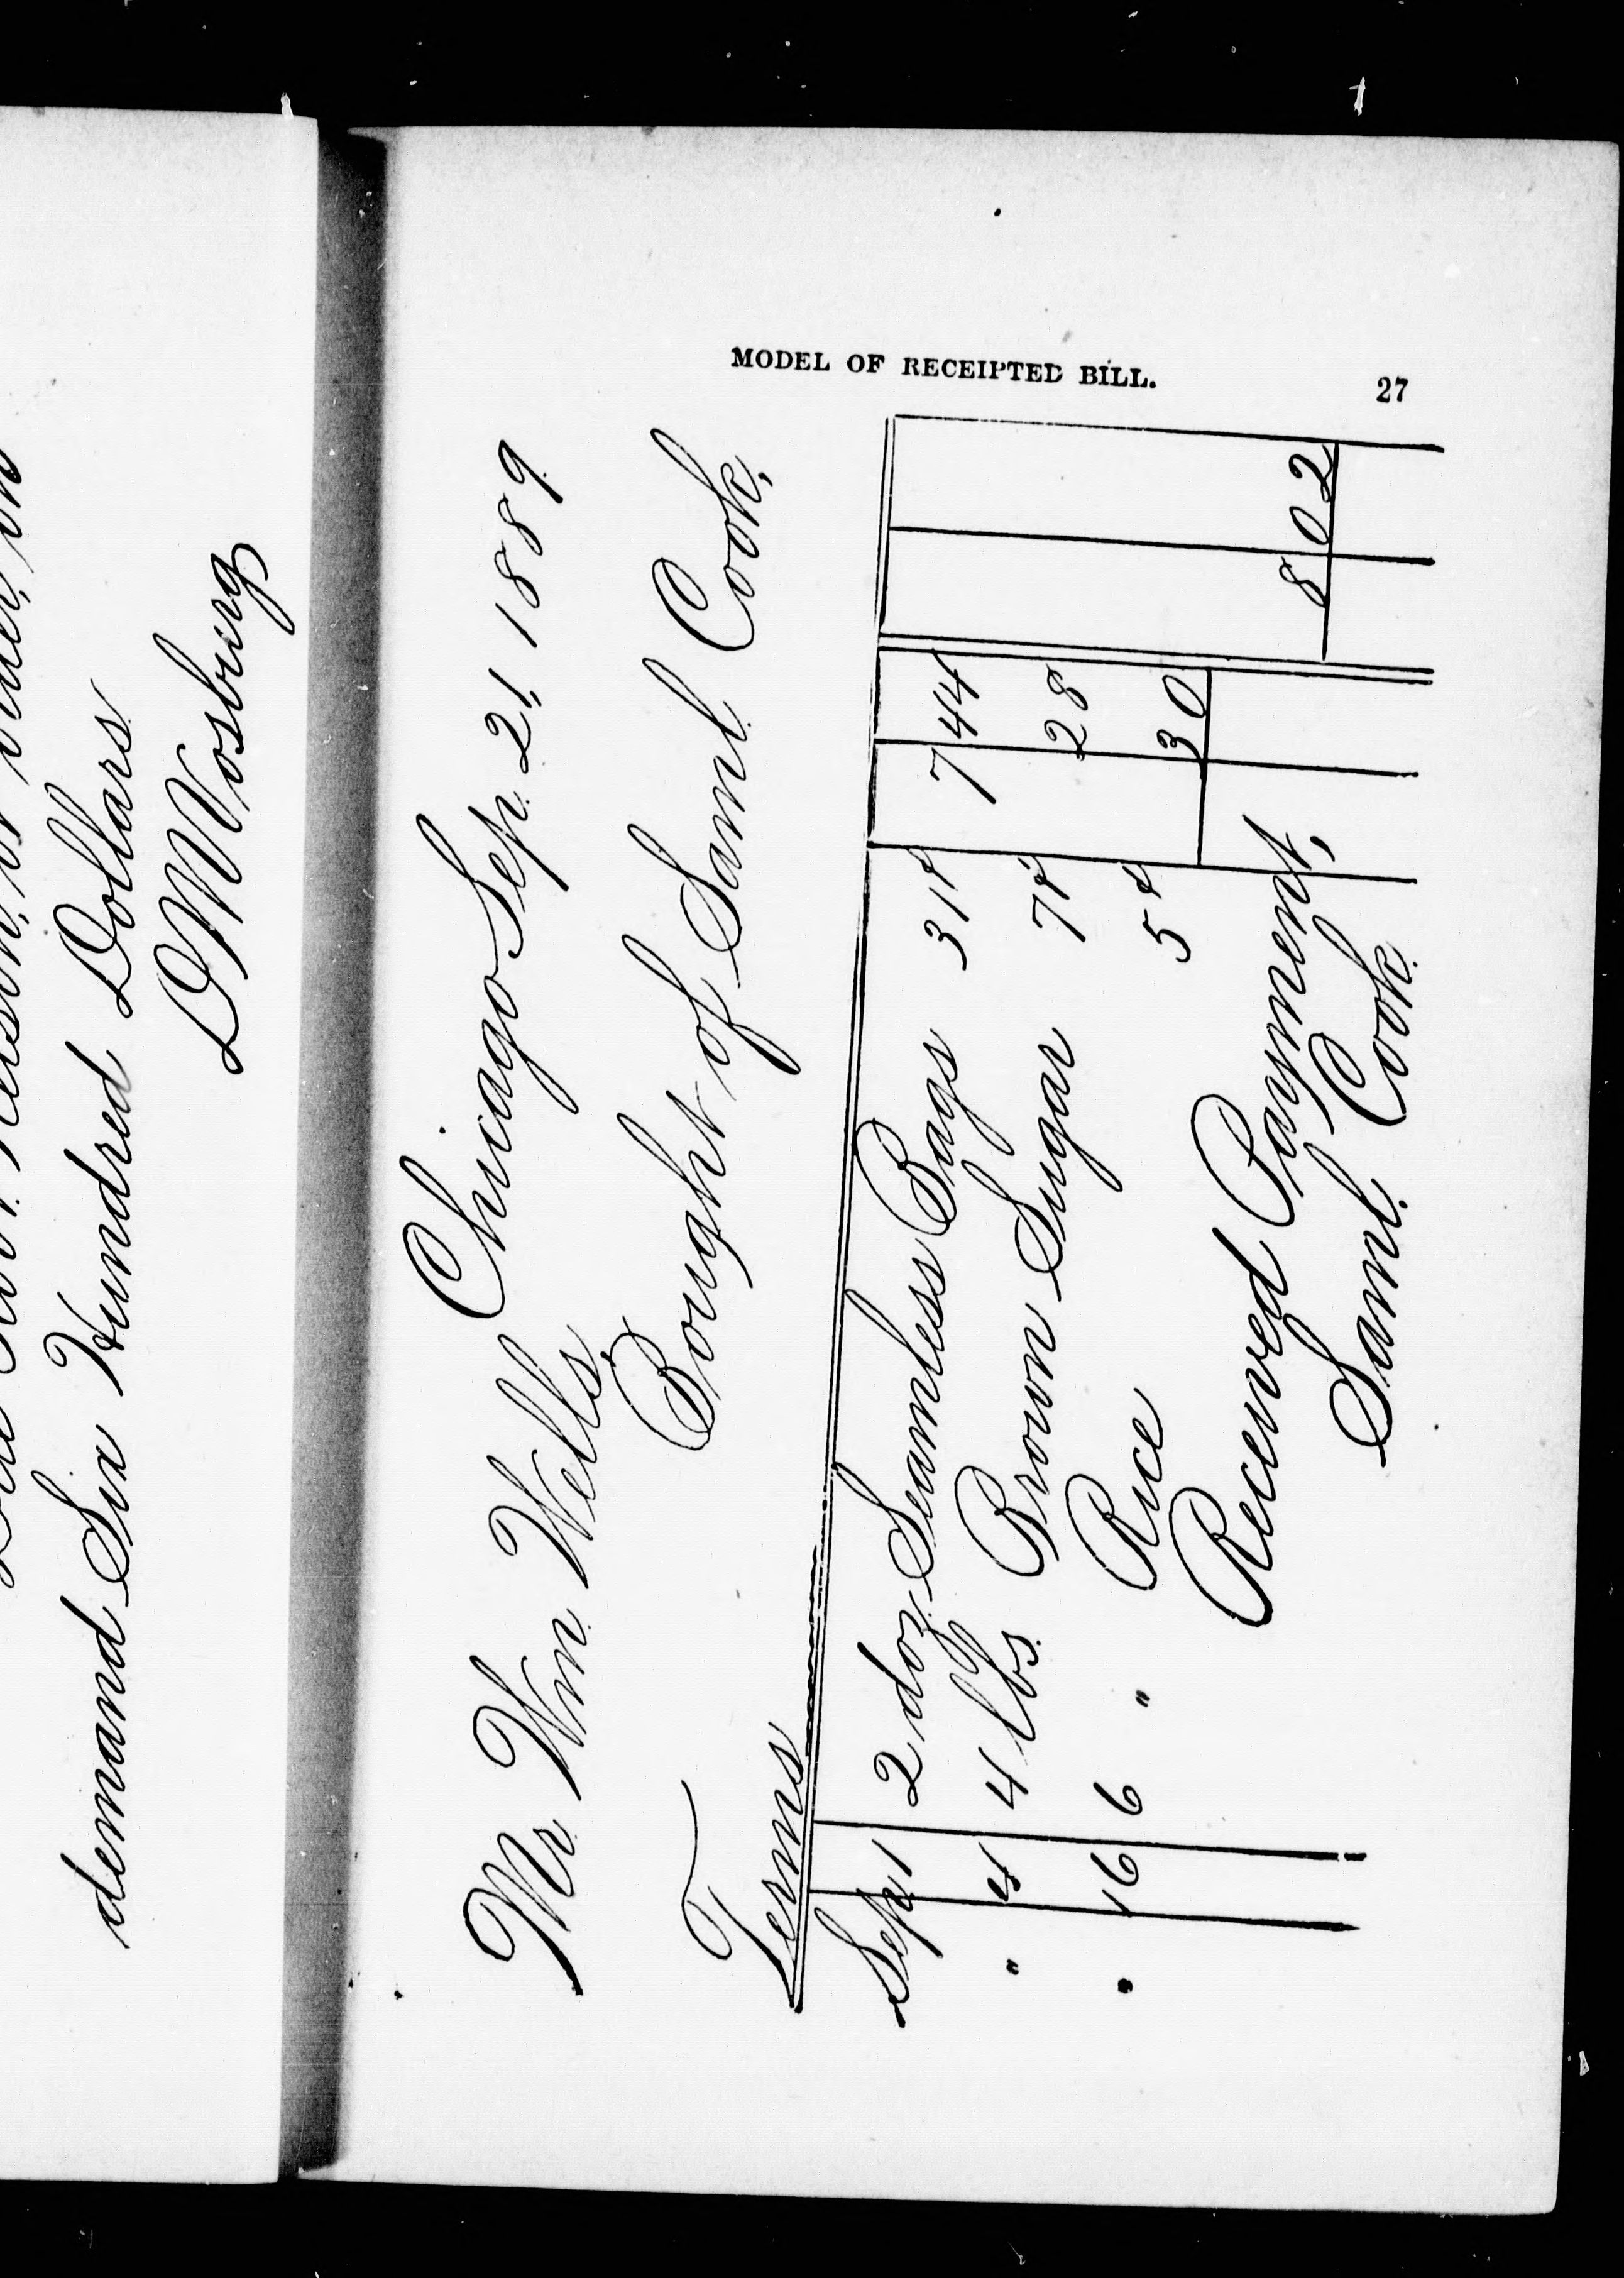 demand Six Hundred Dollars
D M Vosburg
MODEL OF RECEIPTED BILL.
27
Chicago Sep. 21, 1889
Mr Wm. Wells,
Bought of Saml. Cook,
Terms
Sep 1 2 doz. Seamless Bags 31¢ 7 44
" 4 4 lbs. Brown Sugar 7¢ 28
" 16 6 " Rice 5¢ 30
8 02
Received Payment,
Saml. Cook.